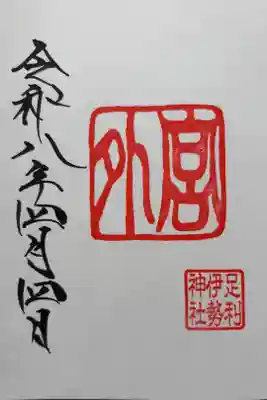 令和八年四月四日
外宮
足利
伊勢
神社